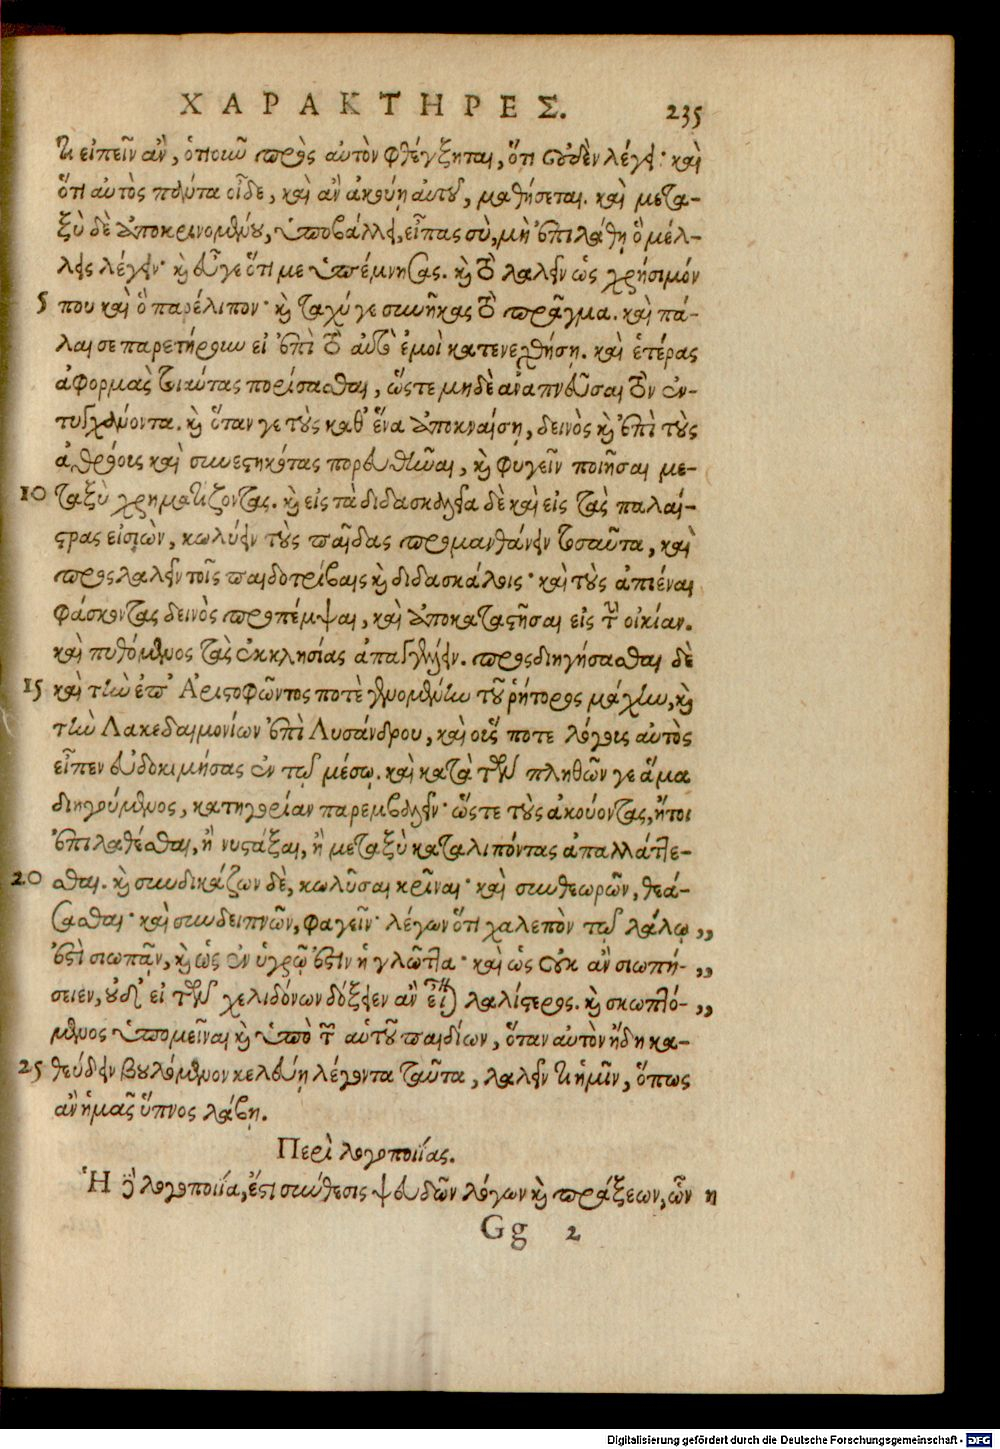 ΧΑΡΑΚΤΗΡΕΣ. 235
τι εἰπεῖν ἂν, ὁτιοιοῦ πρὸς αὐτὸν φθέγξηται, ὅτι οὐδὲν λέγει· καὶ
ὅτι αὐτὸς πάντα οἶδε, καὶ ἂν ἀκούῃ αὐτοῦ, μαθήσεται. καὶ μετα-
ξὺ δὲ ἀποκρινομένου, ὑποβάλλει, εἶπας σὺ, μὴ ἐπιλάθῃ ὃ μέλ-
λεις λέγειν· καὶ εὖ γε ὅτι με ὑπέμνησας. καὶ τὸ λαλεῖν ὡς χρήσιμόν
5 που καὶ ὃ παρέλιπον· καὶ ταχύ γε συνῆκας τὸ πρᾶγμα. καὶ πά-
λαι σε παρετήρουν εἰ ἐπὶ τὸ αὐτὸ ἐμοὶ κατενεχθήσῃ. καὶ ἑτέρας
ἀφορμὰς τοιαύτας πορίσασθαι, ὥστε μηδὲ ἀναπνεῦσαι τὸν ἐν-
τυγχάνοντα. καὶ ὅταν γε τοὺς καθ' ἕνα ἀποκναίσῃ, δεινὸς καὶ ἐπὶ τοὺς
ἀθρόους καὶ συνεστηκότας πορευθῆναι, καὶ φυγεῖν ποιῆσαι με-
10 ταξὺ χρηματίζοντας. καὶ εἰς τὰ διδασκαλεῖα δὲ καὶ εἰς τὰς παλαί-
στρας εἰσιὼν, κωλύειν τοὺς παῖδας προμανθάνειν τοσαῦτα, καὶ
προςλαλεῖν τοῖς παιδοτρίβαις καὶ διδασκάλοις· καὶ τοὺς ἀπιέναι
φάσκοντας δεινὸς προπέμψαι, καὶ ἀποκαταστῆσαι εἰς τὴν οἰκίαν.
καὶ πυθόμενος τὰς ἐκκλησίας ἀπαγγέλλειν. προςδιηγήσασθαι δὲ
15 καὶ τὴν ἐπ' Ἀριστοφῶντος ποτὲ γενομένην τοῦ ῥήτορος μάχην, καὶ
τὴν Λακεδαιμονίων ἐπὶ Λυσάνδρου, καὶ οὕς ποτε λόγους αὐτὸς
εἶπεν εὐδοκιμήσας ἐν τῷ μέσῳ. καὶ κατὰ τῶν πληθῶν γε ἅμα
διηγούμενος, κατηγορίαν παρεμβαλεῖν· ὥστε τοὺς ἀκούοντας, ἤτοι
ἐπιλαθέσθαι, ἢ νυστάξαι, ἢ μεταξὺ καταλιπόντας ἀπαλλάττε-
20 σθαι. καὶ συνδικάζων δὲ, κωλῦσαι κρῖναι· καὶ συνθεωρῶν, θεά-
σασθαι· καὶ συνδειπνῶν, φαγεῖν· λέγων ὅτι χαλεπὸν τῷ λάλῳ „
ἐστὶ σιωπᾷν, καὶ ὡς ἐν ὑγρῷ ἐστὶν ἡ γλῶττα· καὶ ὡς οὐκ ἂν σιωπή- „
σειεν, οὐδ' εἰ τῶν χελιδόνων δόξειεν ἂν εἶναι λαλίστερος. καὶ σκωπτό- „
μενος ὑπομεῖναι καὶ ὑπὸ τῶν αὑτοῦ παιδίων, ὅταν αὐτὸν ἤδη κα-
25 θεύδειν βουλόμενον κελεύῃ λέγοντα ταῦτα, λαλεῖν τι ἡμῖν, ὅπως
ἂν ἡμᾶς ὕπνος λάβῃ.
Περὶ λογοποιΐας.
Ἡ δὲ λογοποιΐα, ἐστὶ σύνθεσις ψευδῶν λόγων καὶ πράξεων, ὧν η
Gg 2
Digitalisierung gefördert durch die Deutsche Forschungsgemeinschaft - DFG